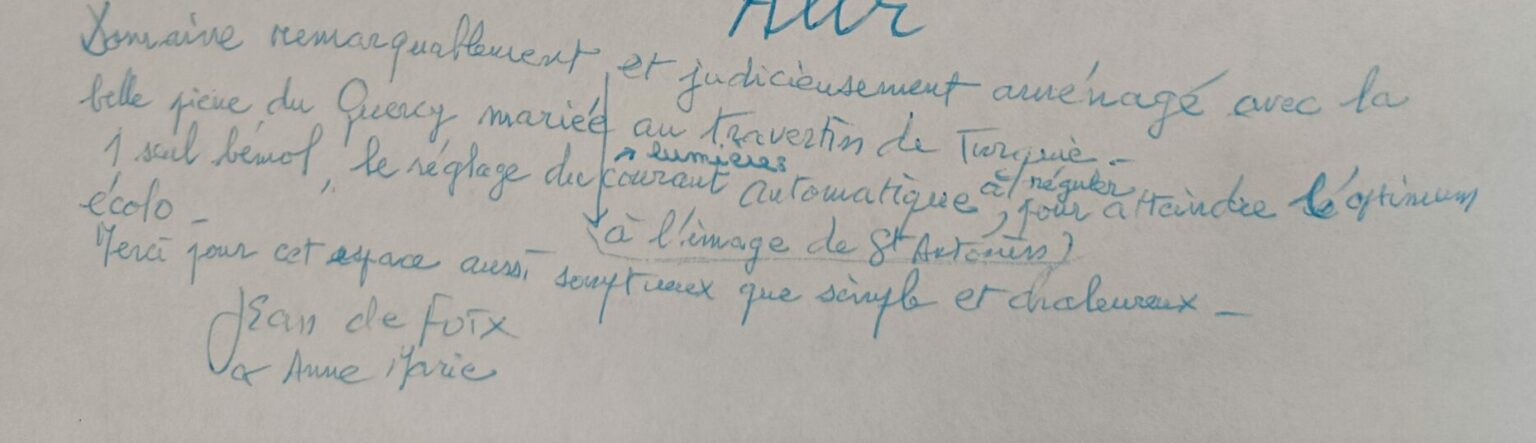 Domaine remarquablement et judicieusement aménagé avec la
belle pierre du Quercy mariée au travertin de Turquie -
↗ lumières
1 seul bémol, le réglage du courant automatique à réguler, pour atteindre l'optimum
écolo -
(à l'image de St Antonin)
Merci pour cet espace aussi somptueux que simple et chaleureux -
Jean de Foix
& Anne Marie